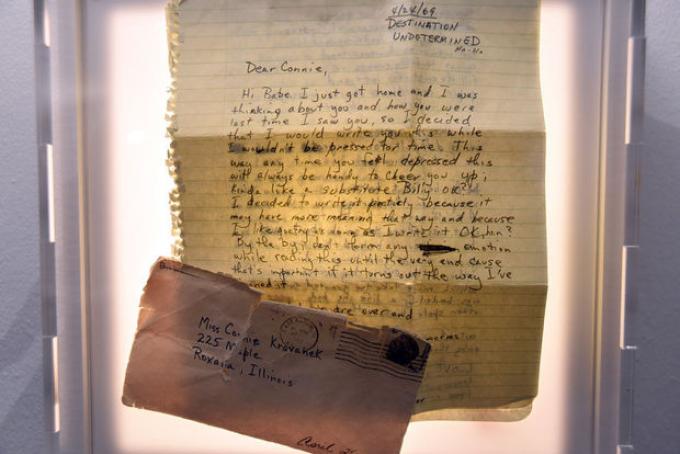 4/24/69
DESTINATION
UNDETERMINED
Ha-Ha
Dear Connie,
Hi Babe. I just got home and I was
thinking about you and how you were
last time I saw you, so I decided
that I would write you this while
I wouldn't be pressed for time. This
way any time you feel depressed this
will always be handy to cheer you up,
kinda like a substitute Billy OK?
I decided to write it poeticly because it
may have more meaning that way and because
I like poetry as long as I write it OK, hon?
By the by, don't form any emotion
while reading this until the very end cause
that's important if it turns out the way I've
are over and
Miss Connie
225 Maple
Roxana, Illinois
April